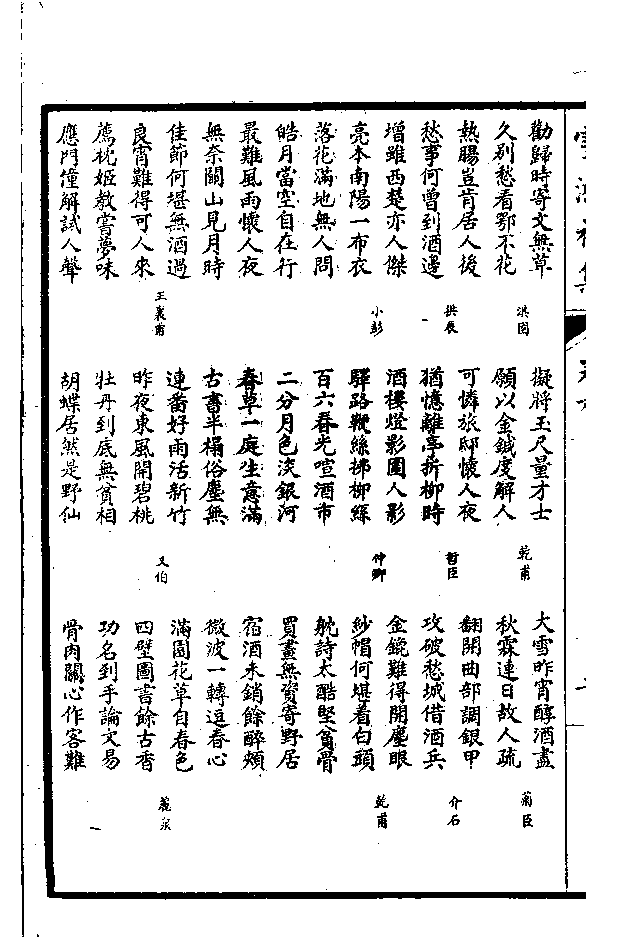 勸歸時寄文無草
久別愁看鄂不花
洪園
熱腸豈肯居人後
愁事何曾到酒邊
拱辰
增雖西楚亦人傑
亮本南陽一布衣
小彭
落花滿地無人問
皓月當空自在行
最難風雨懷人夜
無奈關山見月時
佳節何堪無酒過
良宵難得可人來
王襄甫
薦枕姬教嘗夢味
應門僮解試人聲
擬將玉尺量才士
願以金鍼度解人
乾甫
可憐旅邸懷人夜
猶憶離亭折柳時
哲臣
酒樓燈影圍人影
驛路鞭絲拂柳絲
仲卿
百六春光喧酒市
二分月色淡銀河
春草一庭生意滿
古書半榻俗塵無
連番好雨活新竹
昨夜東風開碧桃
又伯
牡丹到底無貧相
胡蝶居然是野仙
大雪昨宵醇酒盡
秋霖連日故人疏
菊臣
翻開曲部調銀甲
攻破愁城借酒兵
介石
金鎞難得開塵眼
紗帽何堪着白頭
乾甫
躭詩太酷堅貧骨
買畫無資寄野居
宿酒未銷餘醉頰
微波一轉逗春心
滿園花草自春色
四壁圖書餘古香
功名到手論文易
骨肉關心作客難